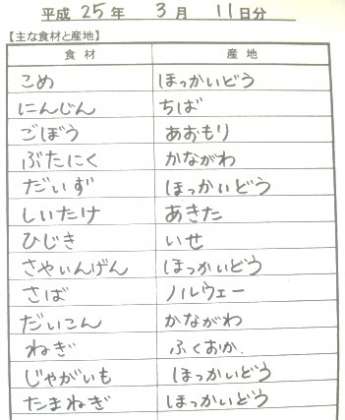 平成 25年 3月 11日分
【主な食材と産地】
食材 産地
こめ ほっかいどう
にんじん ちば
ごぼう あおもり
ぶたにく かながわ
だいず ほっかいどう
しいたけ あきた
ひじき いせ
さやいんげん ほっかいどう
さば ノルウェー
だいこん かながわ
ねぎ ふくおか.
じゃがいも ほっかいどう
たまねぎ ほっかいどう